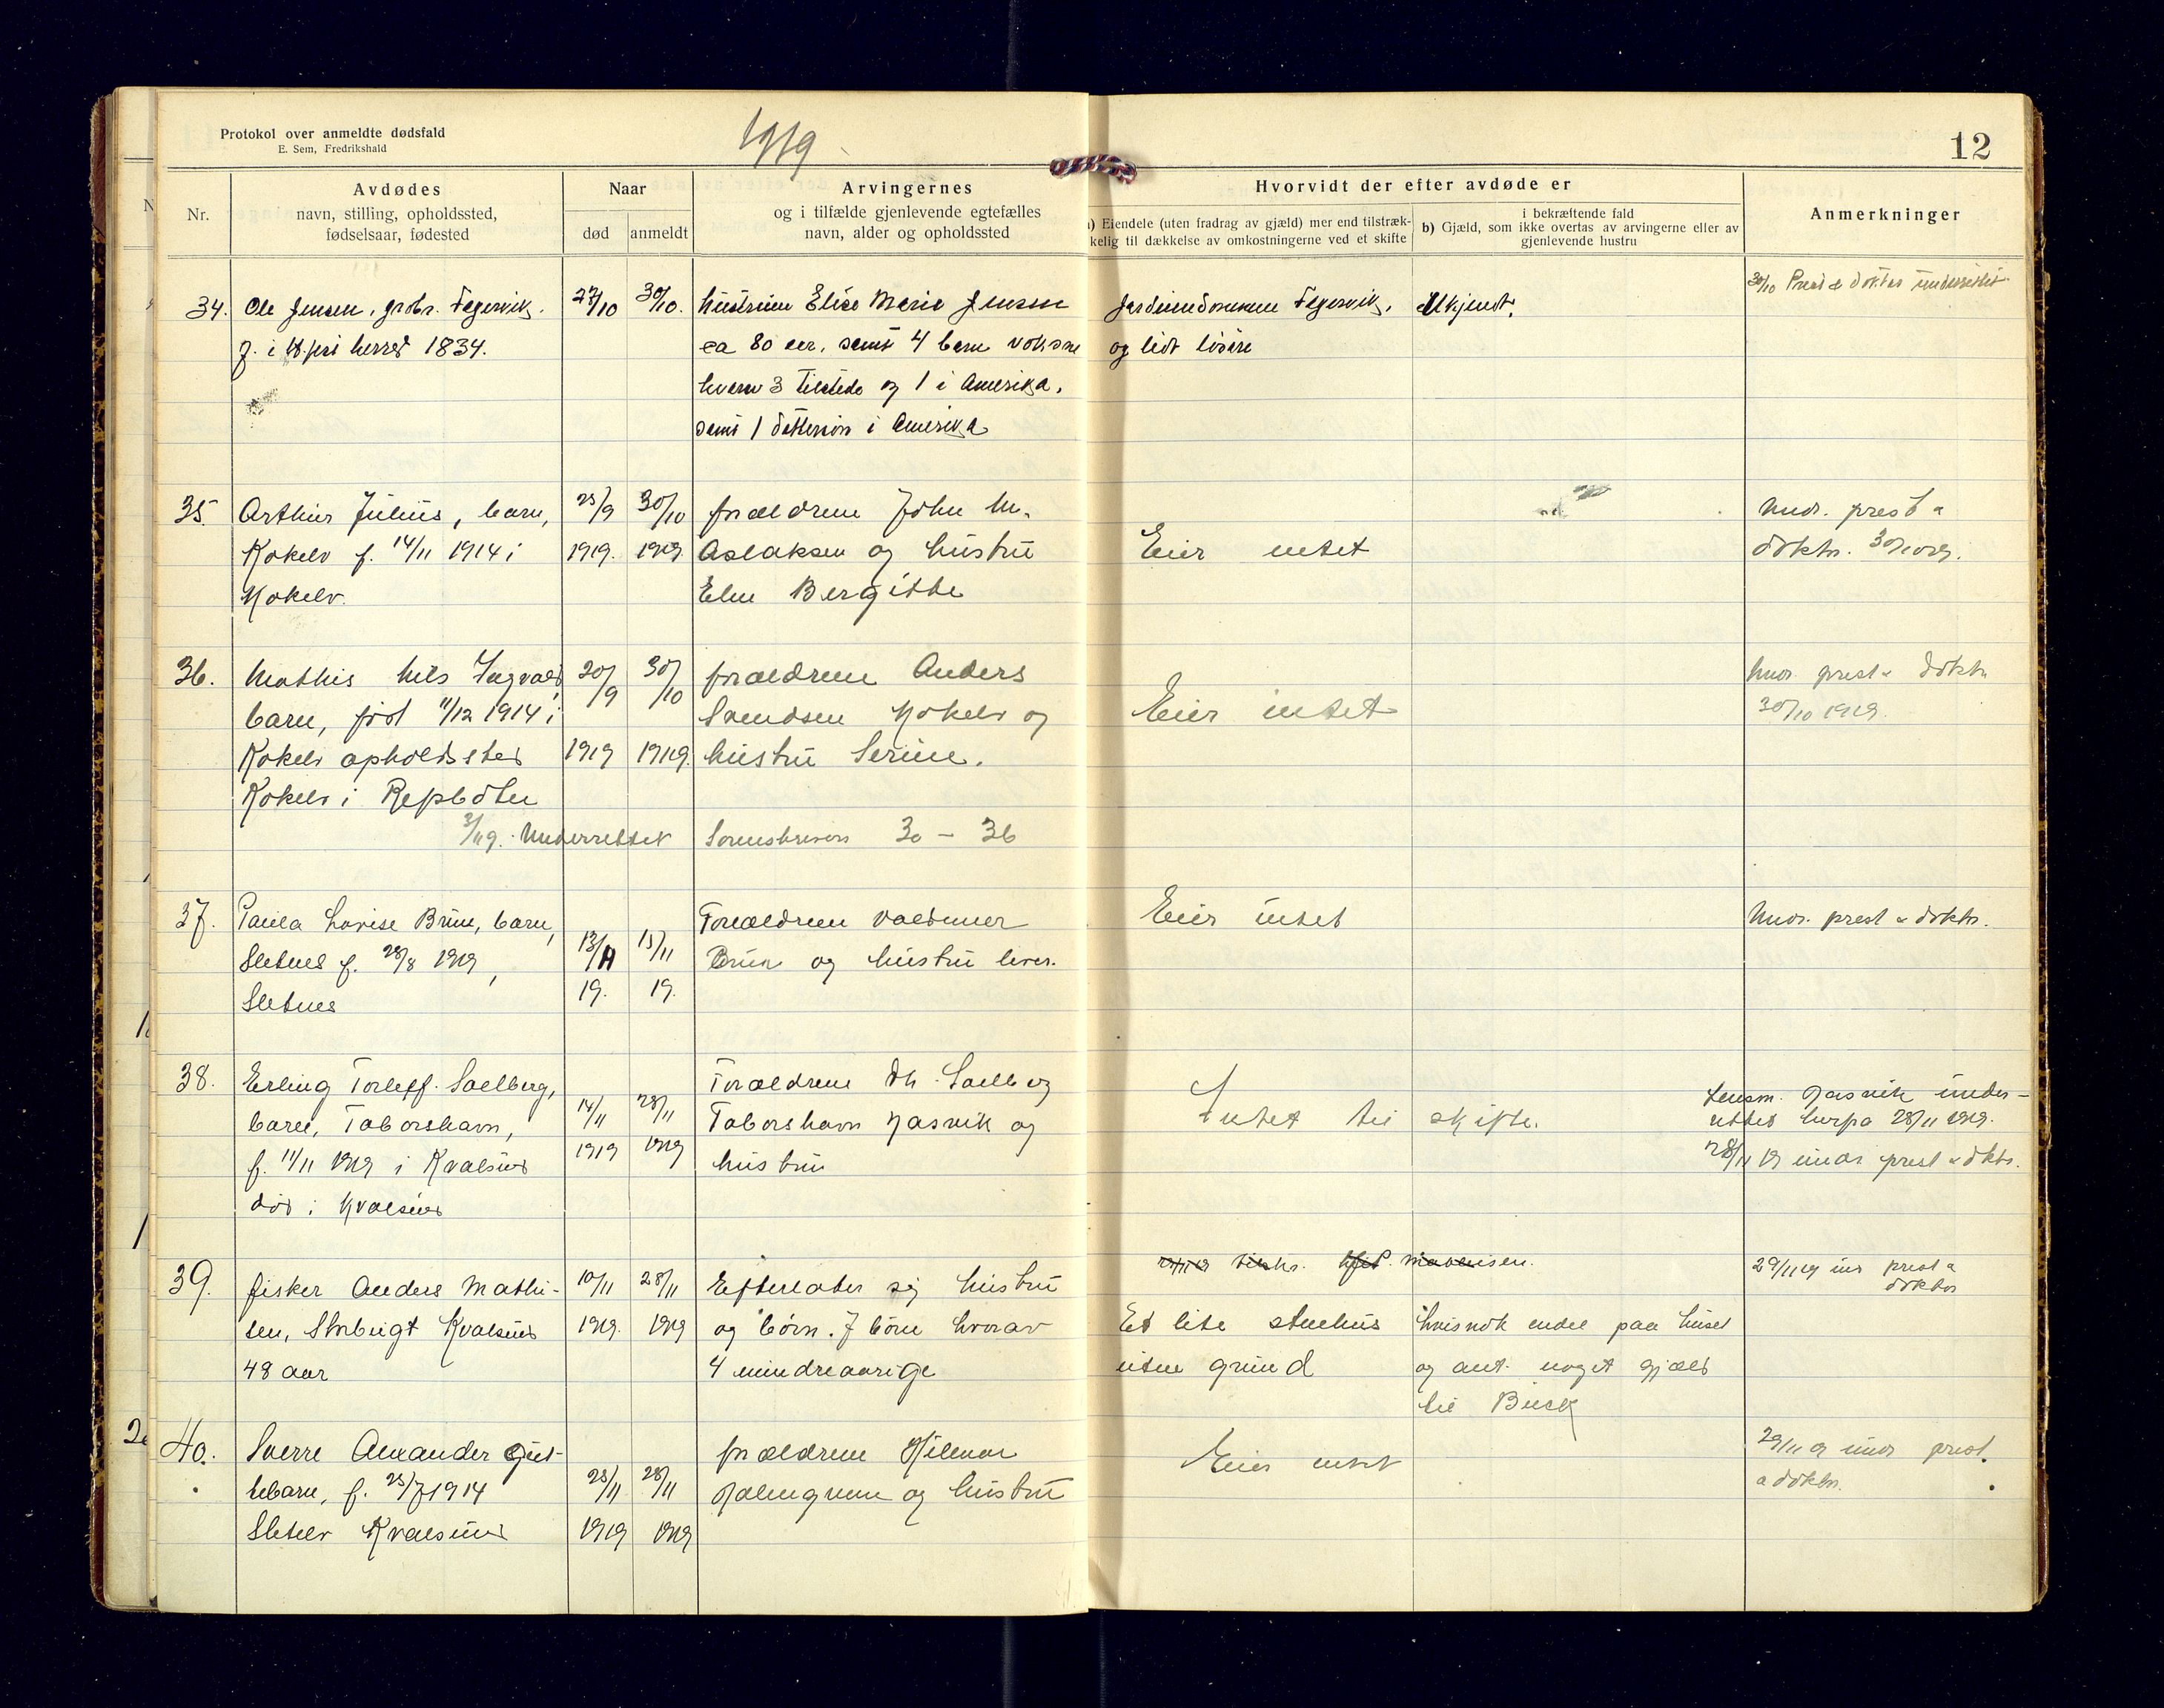 Protokol over anmeldte dødsfald
E. Sem, Fredrikshald
1919
12
Nr.
Avdødes
navn, stilling, opholdssted,
fødselsaar, fødested
Naar
død
anmeldt
Arvingernes
og i tilfælde gjenlevende egtefælles
navn, alder og opholdssted
Hvorvidt der efter avdøde er
a) Eiendele (uten fradrag av gjæld) mer end tilstræk-
kelig til dækkelse av omkostningerne ved et skifte
i bekræftende fald
b) Gjæld, som ikke overtas av arvingerne eller av
gjenlevende hustru
Anmerkninger
34. Ole Jensen, grdbr. Fegervik.
f. i herred 1834.
27/10
30/10.
hustruen Elise Marie Jensen
ca 80 aar, samt 4 barn voksne
hvorav 3 tilstede og 1 i Amerika,
samt 1 dattersøn i Amerika
Jordeiendommen Fegervik,
og lidt løsøre
Ukjendt.
30/10 Prest & doktor underrettet
35. Arthur Julius, barn,
Kokelv f. 14/11 1914 i
Kokelv.
25/9
1919.
30/10
1919
forældrene John M.
Aslaksen og hustru
Elen Bergitte
Eier intet
Undr. prest &
doktor. 30/10 19.
36. Mathis Nils Ingvald
barn, født 11/12 1914 i
Kokelv opholdssted
Kokelv i Repbøten
20/9
1919
30/10
1919.
forældrene Anders
Svendsen Kokelv og
hustru Serine.
Eier intet
Undr. prest & doktor
30/10 1919.
Underrettet Sorenskriveren 30 - 36
37. Paula Lovise Brun, barn,
Sletnes f. 28/8 1919,
Sletnes
13/11
19.
15/11
19.
Forældrene Valdemar
Brun og hustru lever.
Eier intet
Undr. prest & doktor.
38. Erling Torleff. Solberg,
barn, Taborshavn,
f. 11/11 1919 i Kvalsund
død i Kvalsund
14/11
1919
28/11
1919
Forældrene Solberg
Taborshavn og
hustru
Intet til skifte.
Lensm. under-
rettet herpa 28/11 1919.
28/11 19 undr prest & doktor.
39. fisker Anders Mathi-
sen, Storbugt Kvalsund
48 aar
10/11
1919.
28/11
1919
Efterlater sig hustru
og børn. 7 børn hvorav
4 mindreaarige
Et lite stuehus
uten grund
hvisnok endel paa huset
og ant. noget gjæld
til Buck
29/11 19 prest &
doktor
40. Sverre Alexander
barn, f. 25/7 1914
Sletelv Kvalsund
25/11
1919
28/11
1919
forældrene Hilmar
og hustru
Eier intet
29/11 19 undr prest.
& doktor.